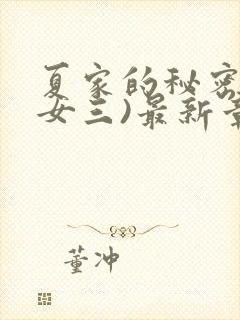 夏家的秘密
女三)最新章
董冲